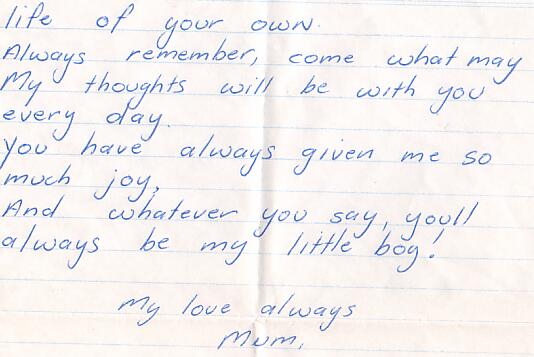 life of your own.
Always remember, come what may
My thoughts will be with you
every day.
You have always given me so
much joy,
And whatever you say, youll
always be my little boy!
My love always
Mum,